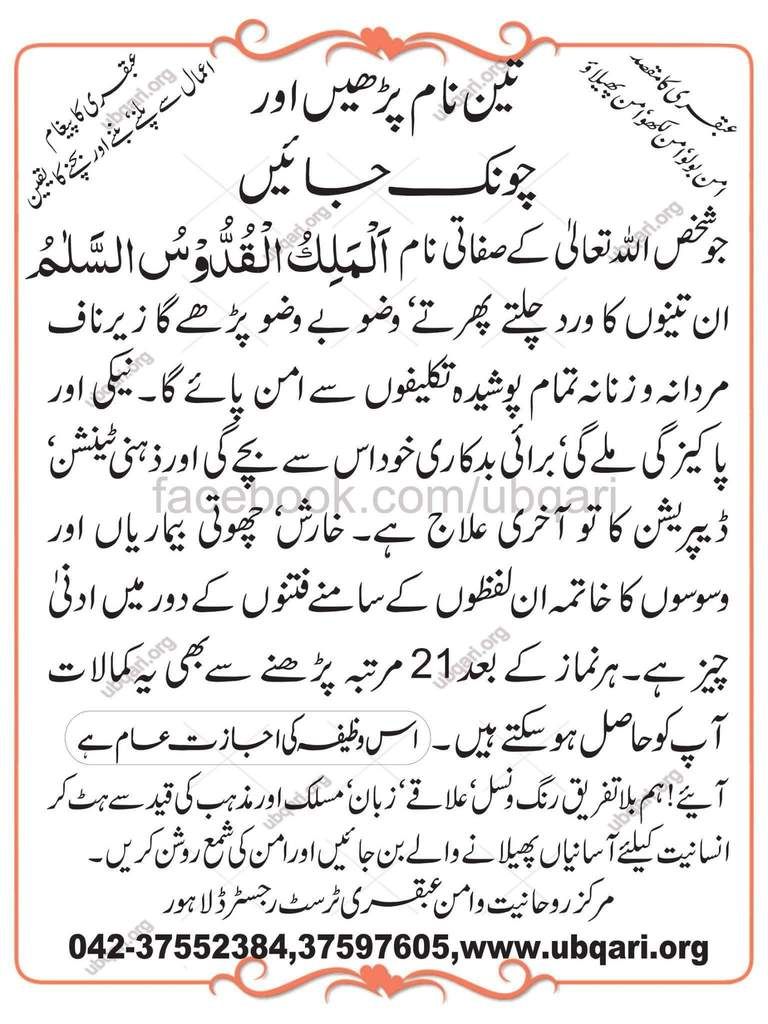 عبقری کا مقصد
امن بولو، امن لکھو، امن پھیلاؤ
عبقری کا پیغام
اعمال سے پلنے، بننے اور بچنے کا یقین
تین نام پڑھیں اور
چونک جائیں
جو شخص اللہ تعالیٰ کے صفاتی نام اَلْمَلِكُ الْقُدُّوْسُ السَّلٰمُ
ان تینوں کا ورد چلتے پھرتے‘ وضو بے وضو پڑھے گا زیر ناف
مردانہ و زنانہ تمام پوشیدہ تکلیفوں سے امن پائے گا۔ نیکی اور
پاکیزگی ملے گی‘ برائی بدکاری خود اس سے بچے گی اور ذہنی ٹینشن‘
facebook.com/ubqari
ڈیپریشن کا تو آخری علاج ہے۔ خارش‘ چھوتی بیماریاں اور
وسوسوں کا خاتمہ ان لفظوں کے سامنے فتنوں کے دور میں ادنیٰ
چیز ہے۔ ہر نماز کے بعد 21 مرتبہ پڑھنے سے بھی یہ کمالات
آپ کو حاصل ہوسکتے ہیں۔ اس وظیفہ کی اجازت عام ہے
آیئے! ہم بلا تفریق رنگ و نسل‘ علاقے‘ زبان‘ مسلک اور مذہب کی قید سے ہٹ کر
انسانیت کیلئے آسانیاں پھیلانے والے بن جائیں اور امن کی شمع روشن کریں۔
مرکز روحانیت و امن عبقری ٹرسٹ رجسٹرڈ لاہور
042-37552384,37597605,www.ubqari.org